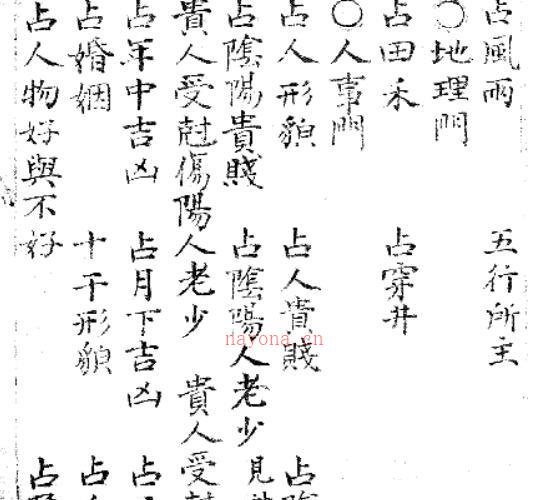 占風雨 五行所主
〇地理門
占田禾 占穿井
〇人事門
占人形貌 占人貴賤 占
占陰陽貴賤 占陰陽人老少 見
貴人受尅傷陽人老少 貴人受尅
占年中吉凶 占月下吉凶 占
占婚姻 十干形貌 占
占人物好與不好 占
nayona.cn